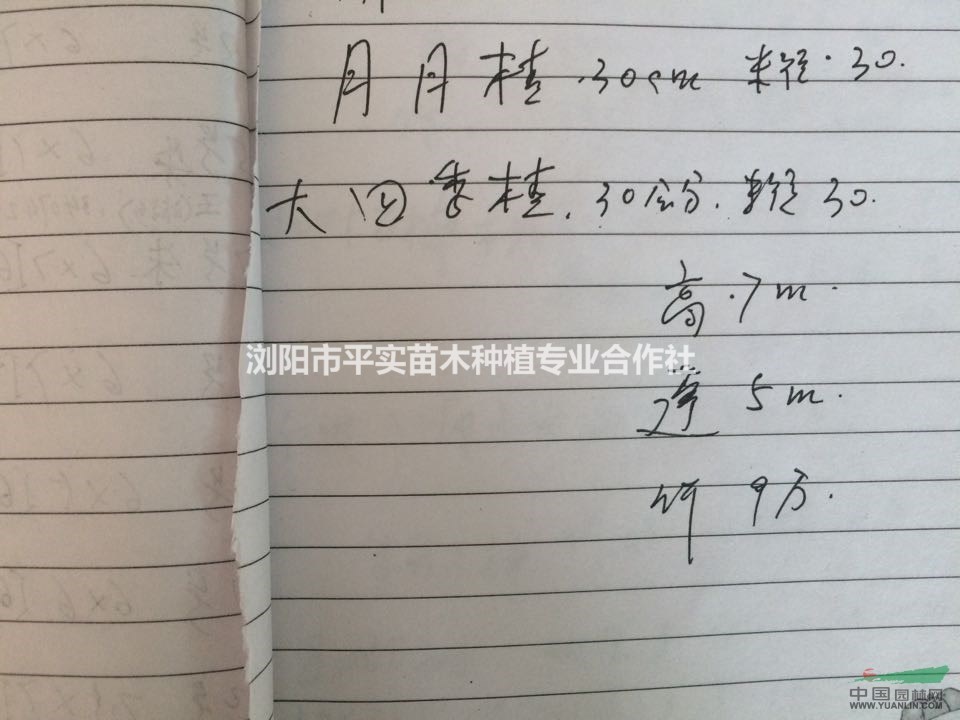 月月桂.30cm 米径.30.
大四季桂.30公分.米径30.
高.7m.
浏阳市平实苗木种植专业合作社
5m.
9万.
中国园林网
WWW.YUANLIN.COM